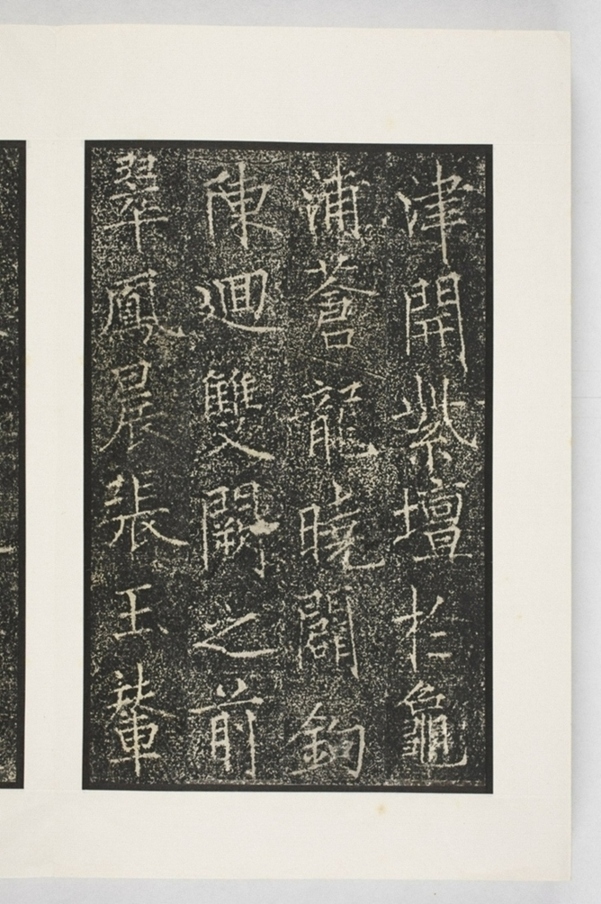 津開紫壇於龜
浦蒼龍曉闢鉤
陳迴雙闕之前
翠鳳晨張玉輦